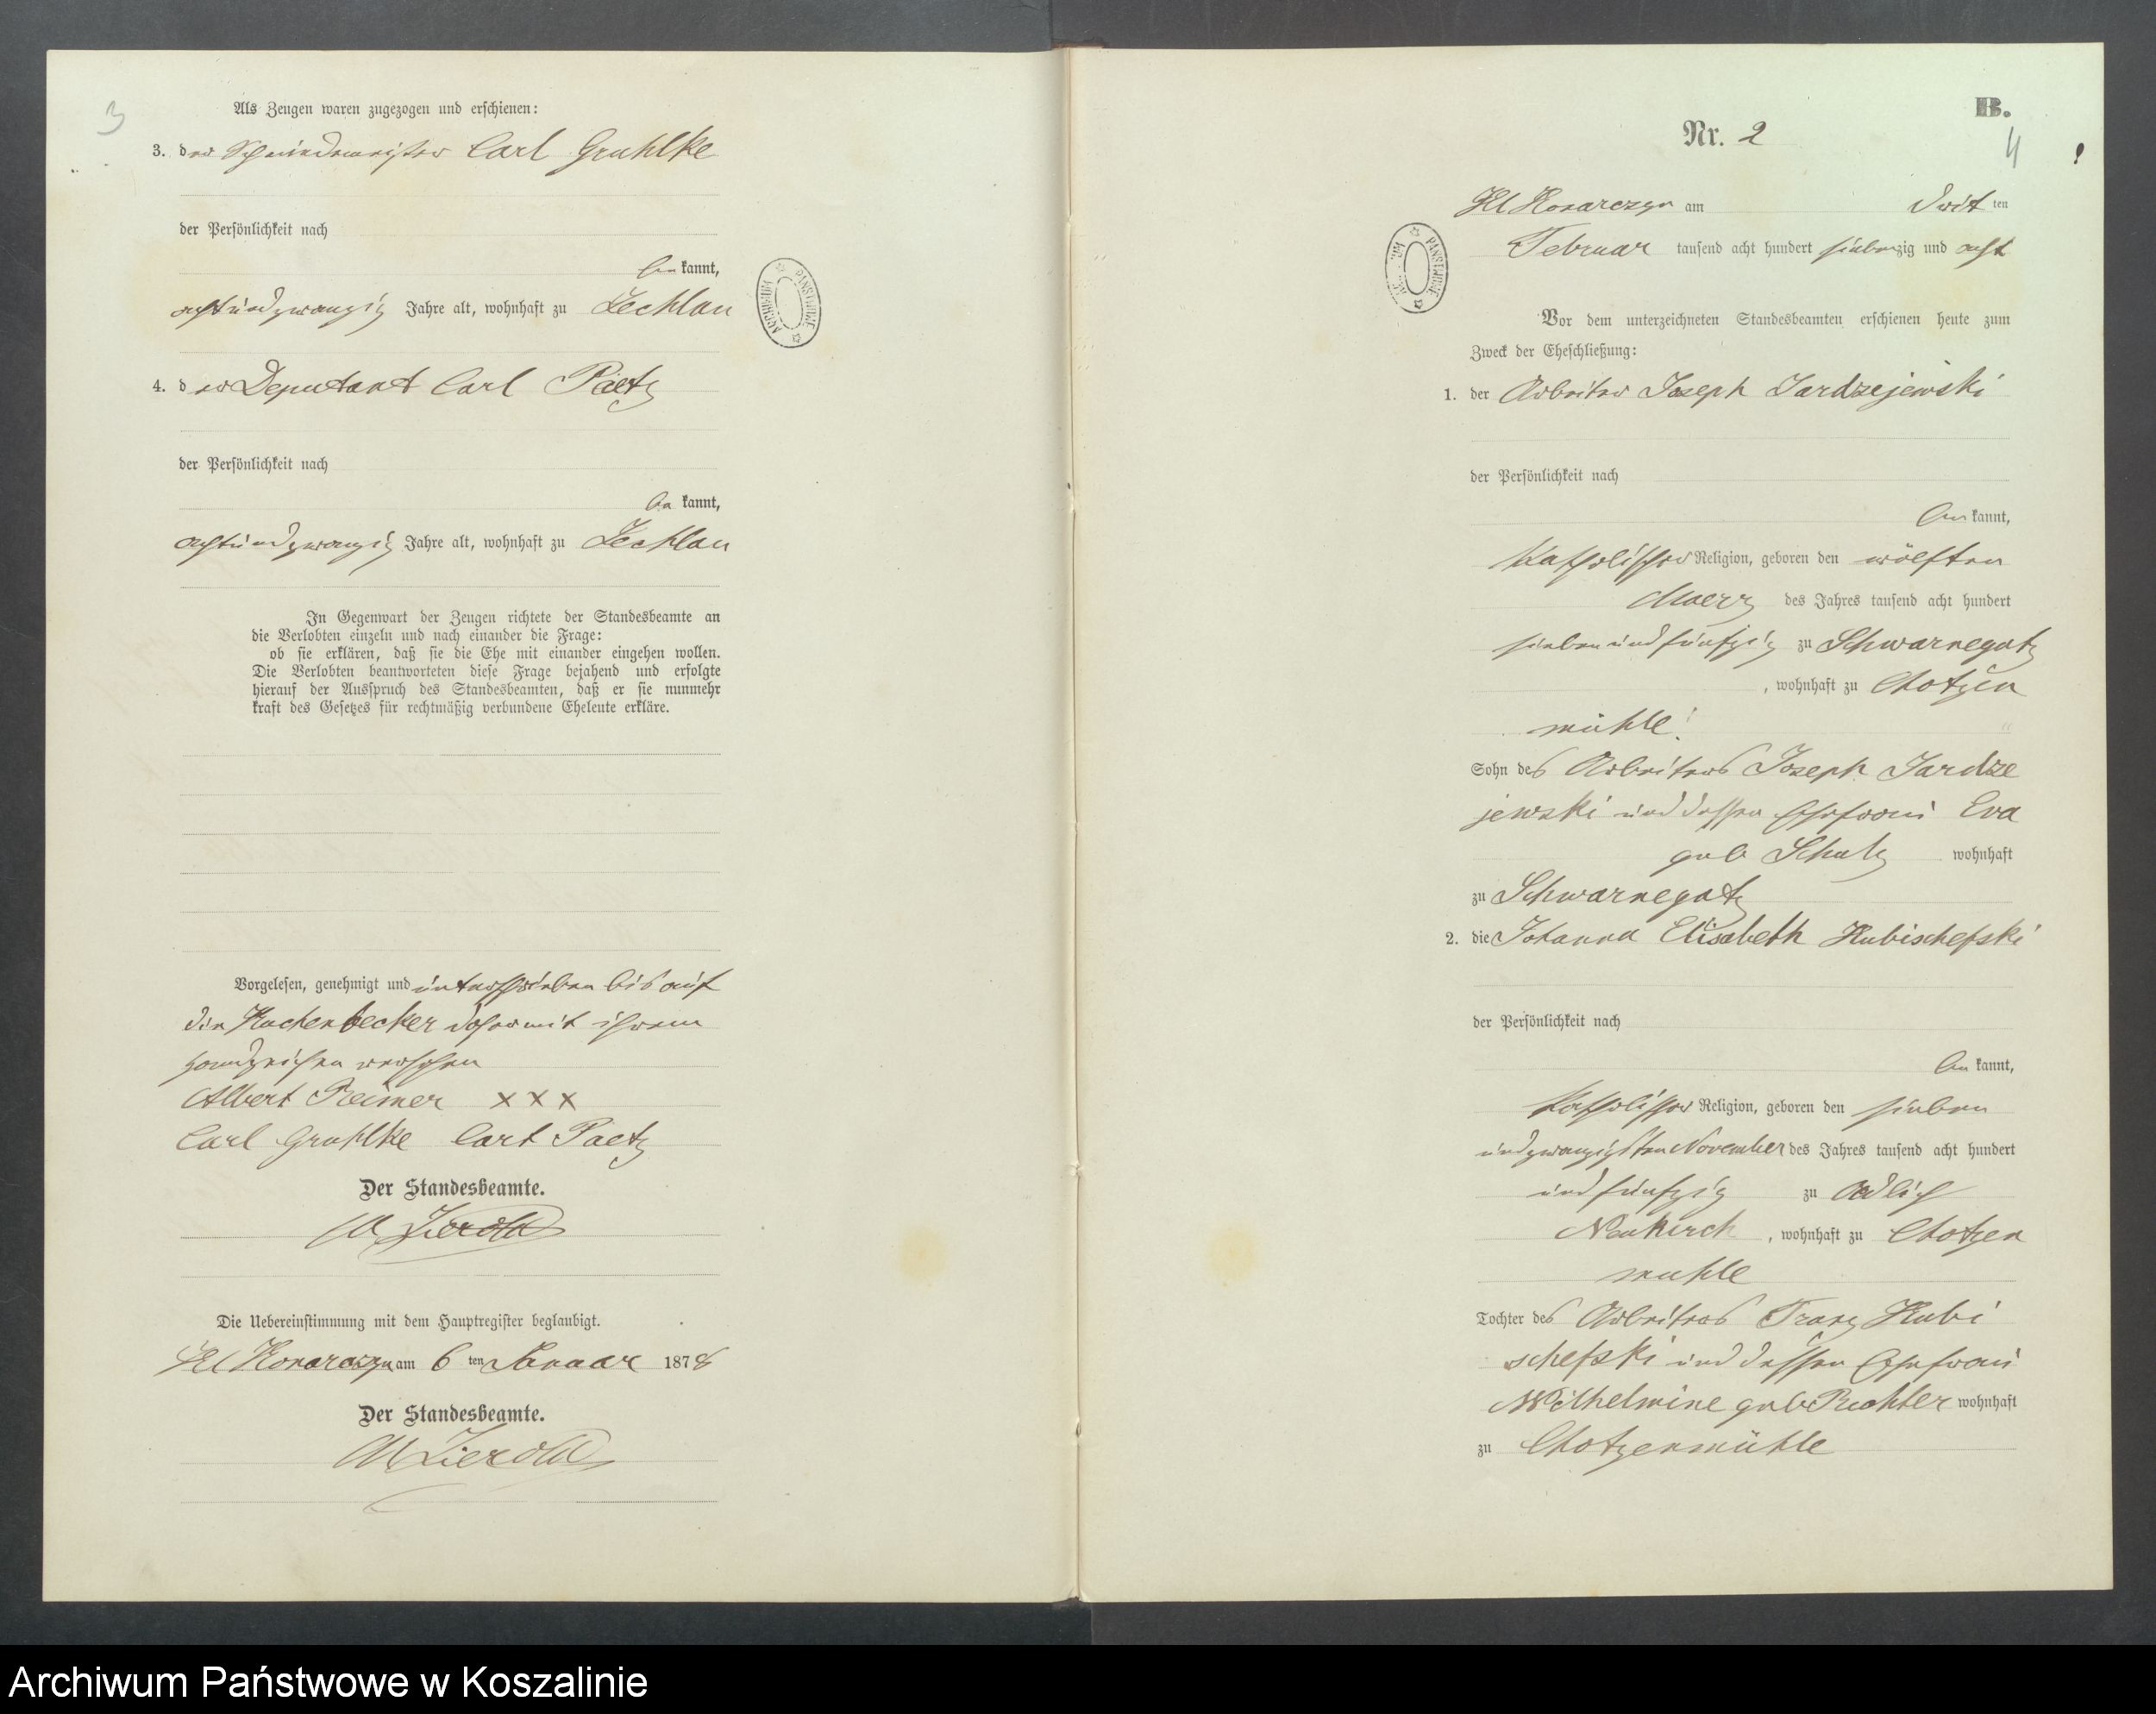 3
Als Zeugen waren zugezogen und erschienen:
3. der Schmiedemeister Carl Gruhlke
der Persönlichkeit nach
bekannt,
achtundzwanzig Jahre alt, wohnhaft zu Zechlau
4. der Deputant Carl Paetz
der Persönlichkeit nach
bekannt,
achtundzwanzig Jahre alt, wohnhaft zu Zechlau
In Gegenwart der Zeugen richtete der Standesbeamte an
die Verlobten einzeln und nach einander die Frage:
ob sie erklären, daß sie die Ehe mit einander eingehen wollen.
Die Verlobten beantworteten diese Frage bejahend und erfolgte
hierauf der Ausspruch des Standesbeamten, daß er sie nunmehr
kraft des Gesetzes für rechtmäßig verbundene Eheleute erkläre.
Vorgelesen, genehmigt und unterschrieben bis auf
die Kuchenbecker daher mit ihrem
Handzeichen versehen
Albert Reimer XXX
Carl Gruhlke Carl Paetz
Der Standesbeamte.
Zierold
Die Uebereinstimmung mit dem Hauptregister beglaubigt.
Kl Konarczyn am 6 ten Januar 1878
Der Standesbeamte.
Zierold
ARCHIWUM PAŃSTWOWE
B.
Nr. 2
4
Kl Konarczyn am Drit ten
Februar tausend acht hundert siebenzig und acht
PAŃSTWOWE
Vor dem unterzeichneten Standesbeamten erschienen heute zum
Zweck der Eheschließung:
1. der Arbeiter Joseph Jardzejewski
der Persönlichkeit nach
bekannt,
Katholischer Religion, geboren den wölften
Maerz des Jahres tausend acht hundert
siebenundfünfzig zu Schwarnegatz
, wohnhaft zu Chotzen
mühle
Sohn des Arbeiters Joseph Jardze
jewski und dessen Ehefrau Eva
geb Schulz wohnhaft
zu Schwarnegatz
2. die Johanna Elisabeth Kubischefski
der Persönlichkeit nach
bekannt,
Katholischer Religion, geboren den sieben
undzwanzigsten November des Jahres tausend acht hundert
und fünfzig zu Adlich
Neukirch, wohnhaft zu Chotzen
muhle
Tochter des Arbeiters Franz Kubi
schefski und dessen Ehefrau
Wilhelmine geb Richter wohnhaft
zu Chotzenmühle
Archiwum Państwowe w Koszalinie